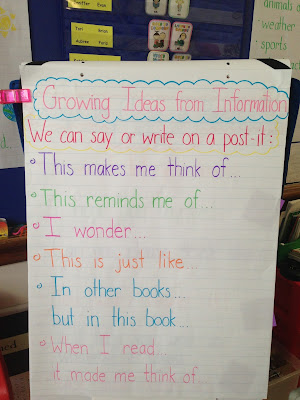 animals
weather
sports
Growing Ideas from Information
We can say or write on a post-it:
This makes me think of...
This reminds me of...
I wonder...
This is just like...
In other books...
but in this book...
When I read...
it made me think of...